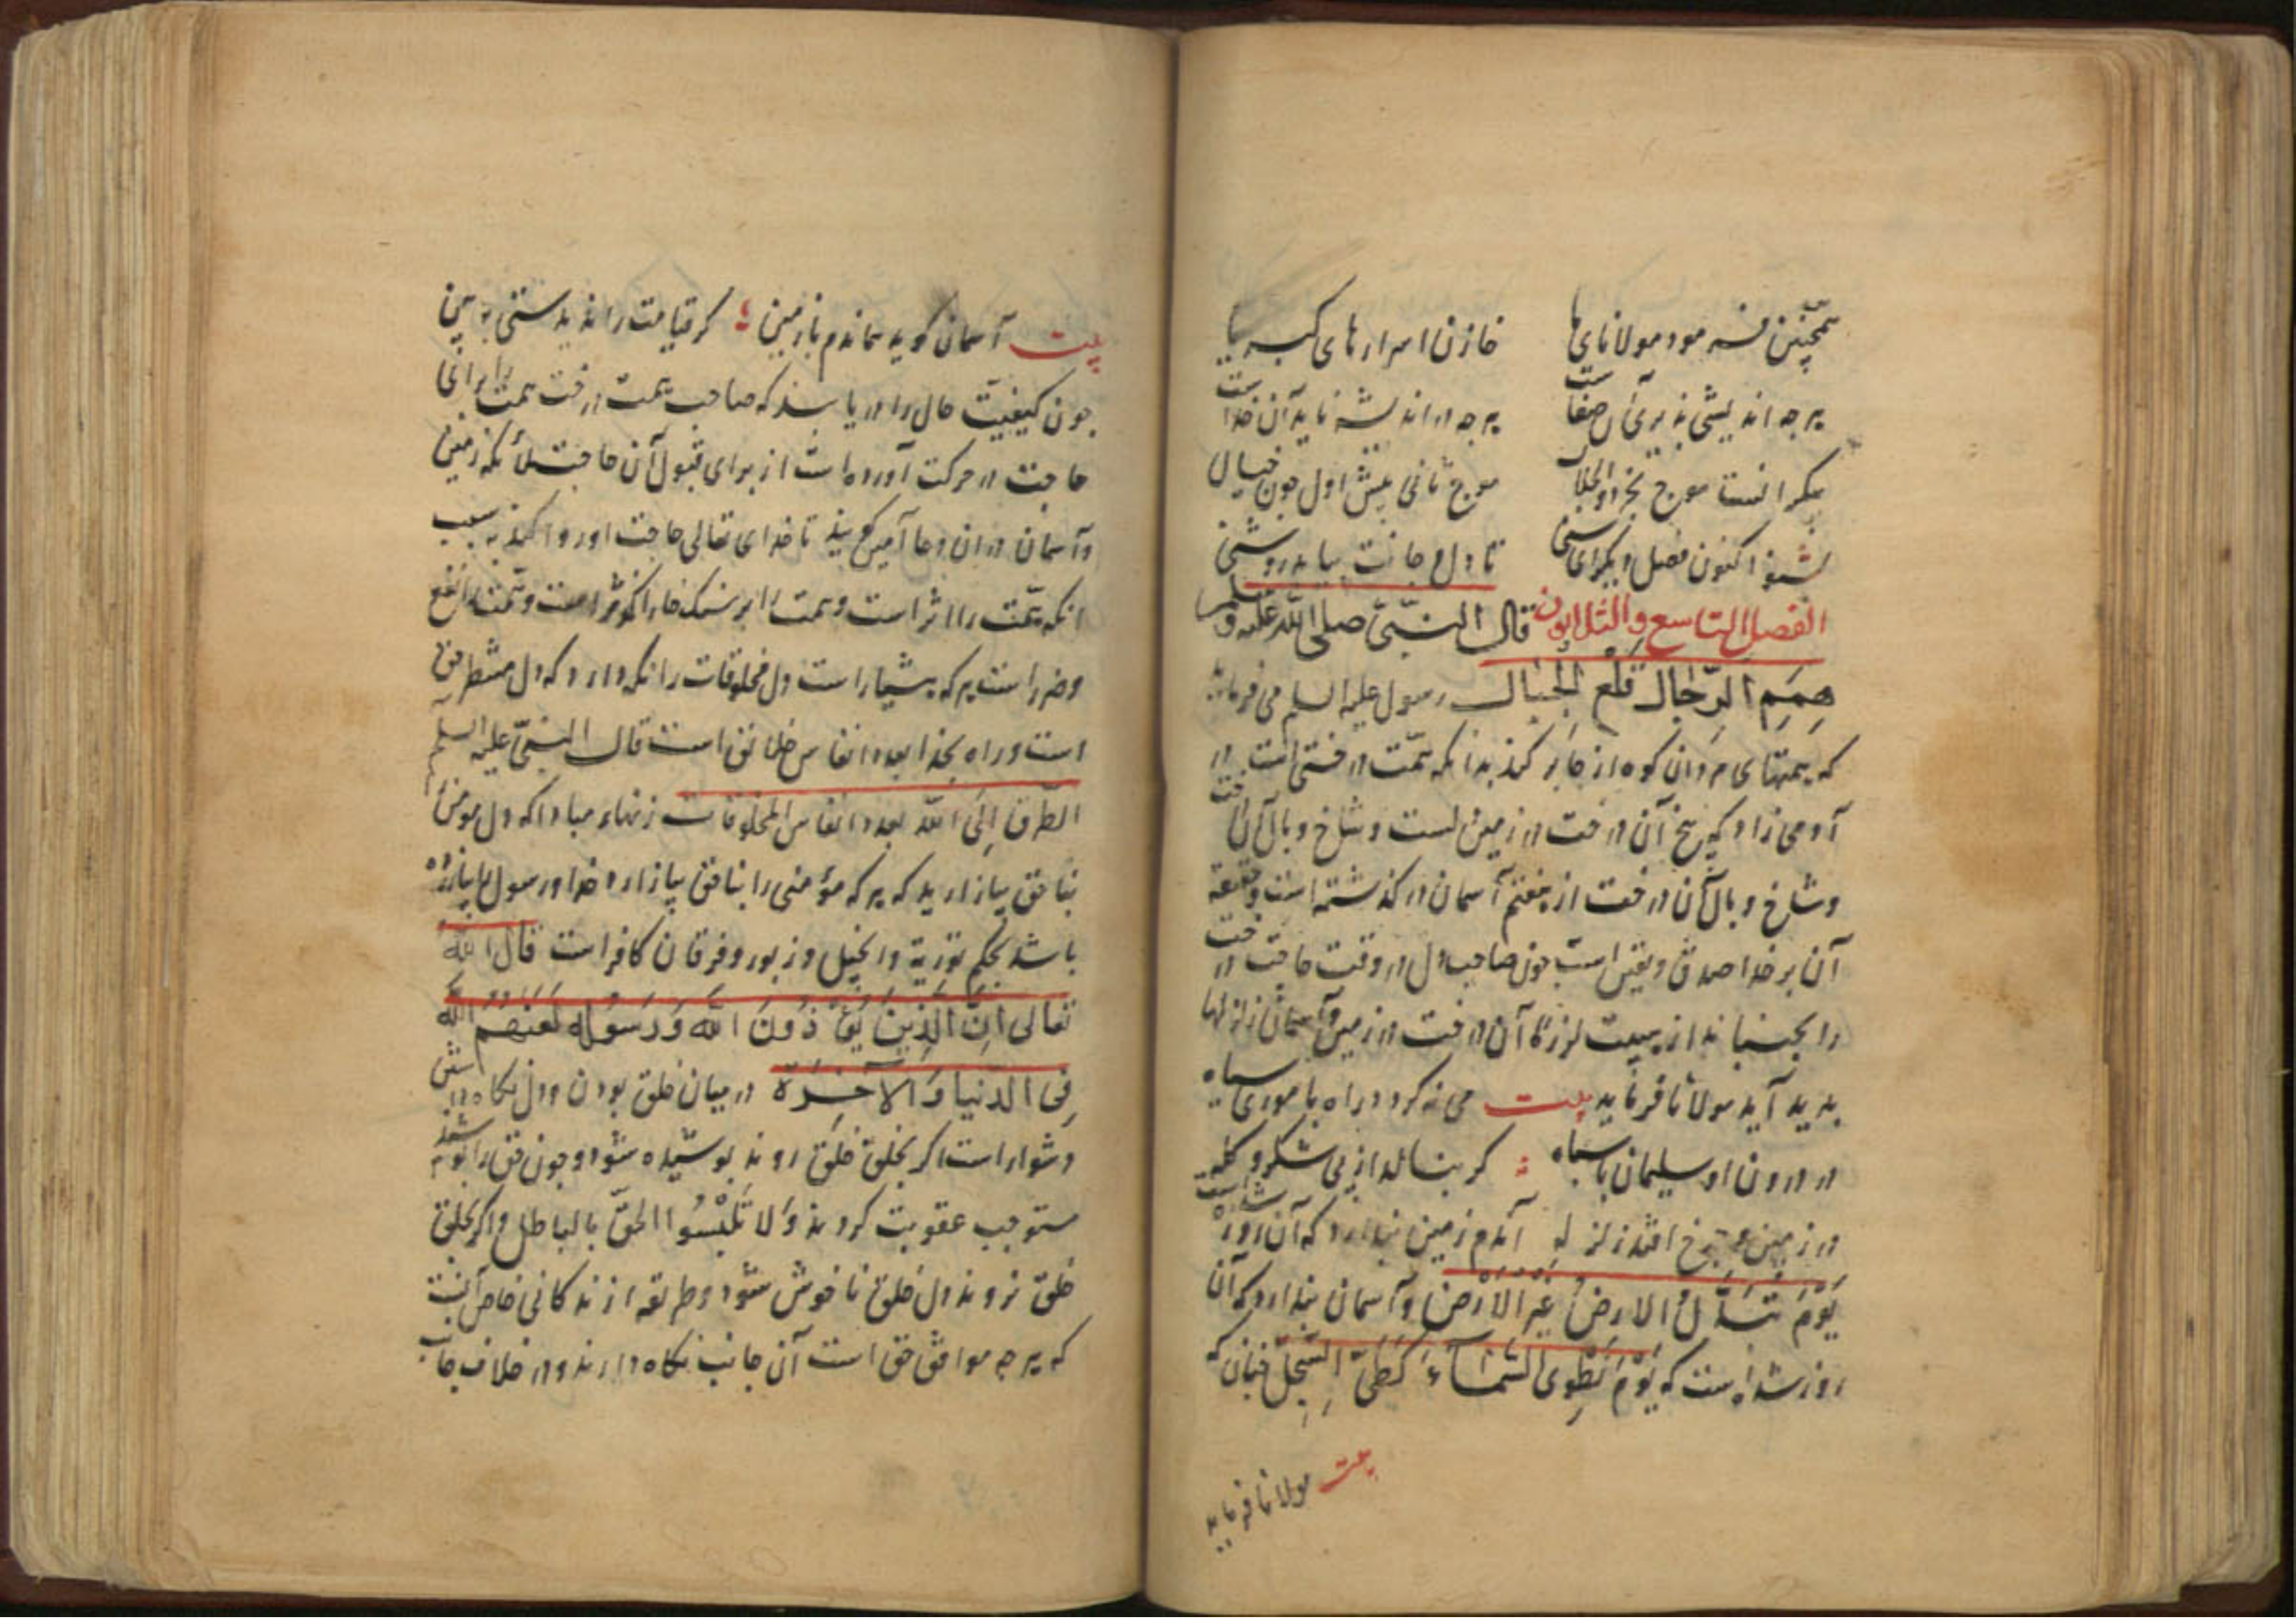 همچنین فرمود مولانای ما خازن اسرارهای کبریا
هرچه اندیشی پذیرای صفاست هرچه در اندیشه ناید آن خداست
موج بحر ذو الجلال موج ثانی پیش اول چون خیال
بشنو اکنون فصل دیگر ای سنی تا دل و جانت بیابد روشنی
الفصل التاسع والثلاثون قال النبی صلی الله علیه وسلم
همم الرجال قلع الجبال رسول علیه السلم می فرماید
که همتهای مردان کوه از جای کند بدانکه همت درختی است در
آدمی زاد که بیخ آن درخت در زمین است و شاخ و بال آن درخت
و شاخ و بال آن درخت از هفتم آسمان در گذشته است و
آن بر خدا صدق و یقین است چون صاحب دل در وقت حاجت درخت
را بجنباند از هیبت لرزه آن درخت در زمین و آسمان زلزلها
بدید آید مولانا فرماید بیت می نگردد راه با موری سیاه
در درون او سلیمان با سپاه گر بنالد از بی شکر و گله
در زمین و چرخ افتد زلزله آن دم زمین پندارد که آن روز شده است
یوم تبدل الارض غیر الارض و آسمان پندارد که آن
روز شده است که یوم نطوی السماء کطی السجل چنان که
مولانا فرماید بیت
بیت آسمان گوید نماندم با زمین گر قیامت را ندیدستی ببین
چون کیفیت حال را دریابند که صاحب همت درخت همت را برای
حاجت در حرکت آورده است از برای قبول آن حاجت ملائکه زمین
و آسمان در آن دعا آمین گویند تا خدای تعالی حاجت او روا کند به سبب
آنکه همت را اثر است و همت را بر سنگ خارا اثر است و همت را نفع
و ضر است هر که هشیار است دل مخلوقات را نگه دارد که دل منظر حق
است و راه بخدا بعدد انفاس خلائق است قال النبی علیه السلم
الطرق الی الله بعدد انفاس المخلوقات زنهار مبادا که دل مومن
بناحق بیازارید که هر که مؤمنی را بناحق بیازارد خدا و رسول را بیازرده
باشد بحکم توریة و انجیل و زبور و فرقان کافر است قال الله
تعالی ان الذین یؤذون الله ورسوله لعنهم الله
فی الدنیا والاخرة در میان خلق بودن و دل نگاه داشتن
دشوار است اگر بخلق خلق روند پوشیده شود و چون حق را بپوشند
مستوجب عقوبت گردند ولا تلبسوا الحق بالباطل و اگر بخلق
خلق نروند دل خلق ناخوش شود و طریقه زندگانی خاص آنست
که هرچه موافق حق است آن جانب نگاه دارند و در خلاف جانب